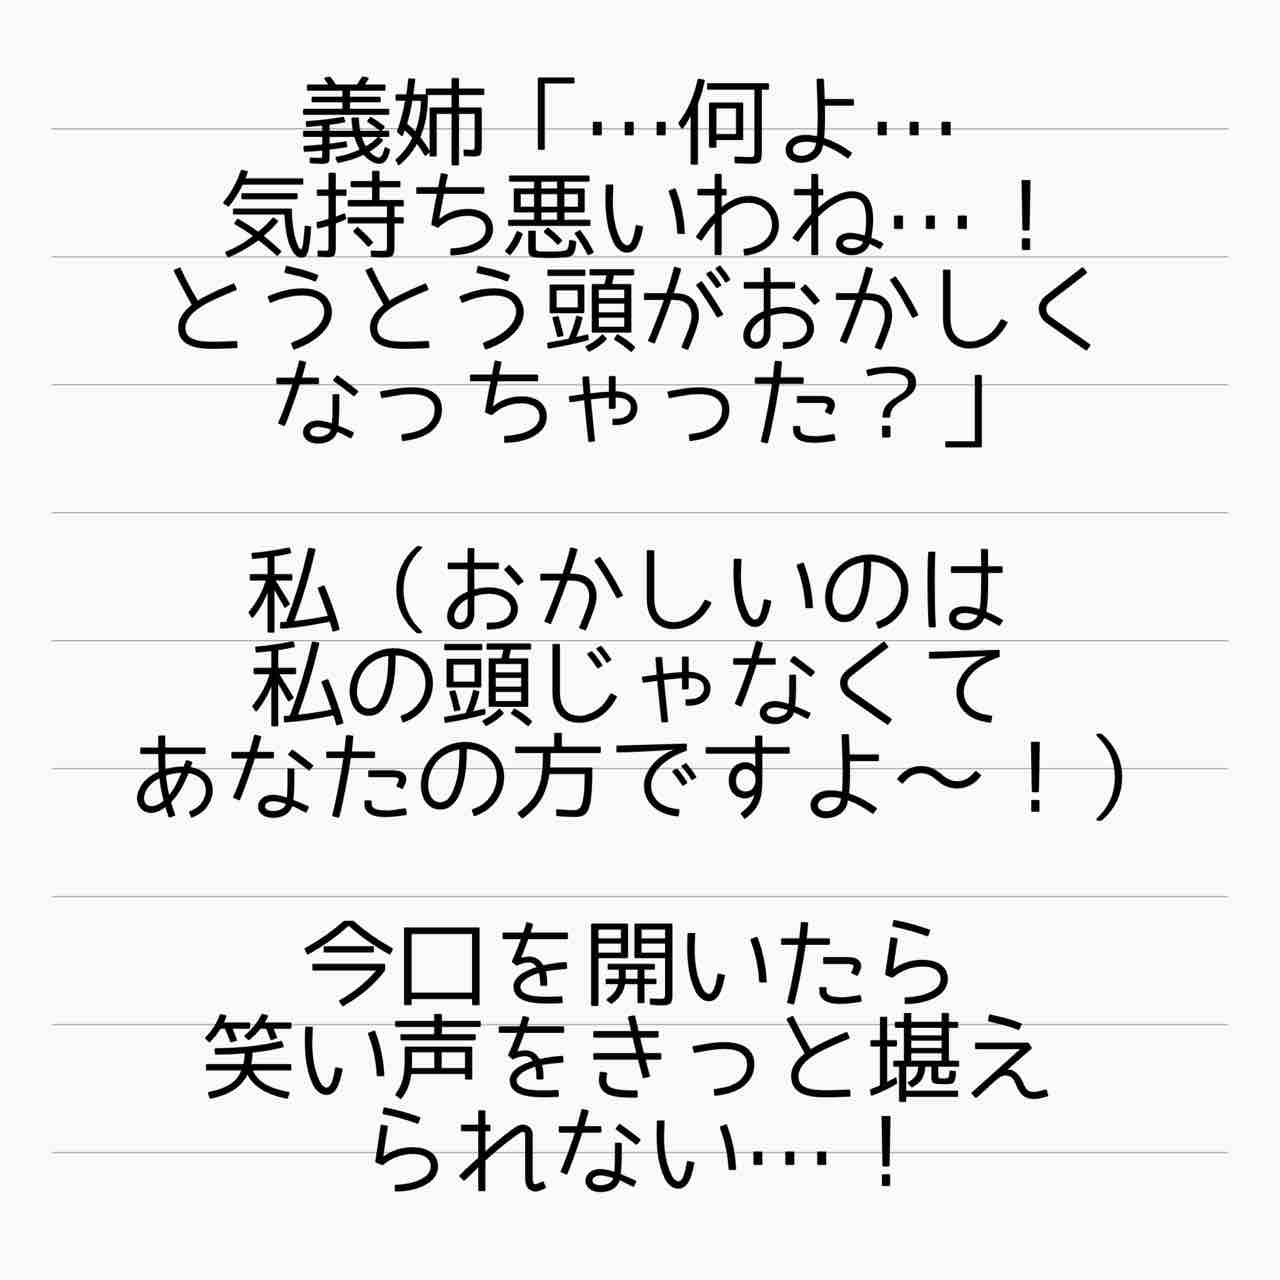 義姉「…何よ…
気持ち悪いわね…！
とうとう頭がおかしく
なっちゃった？」
私（おかしいのは
私の頭じゃなくて
あなたの方ですよ〜！）
今口を開いたら
笑い声をきっと堪え
られない…！